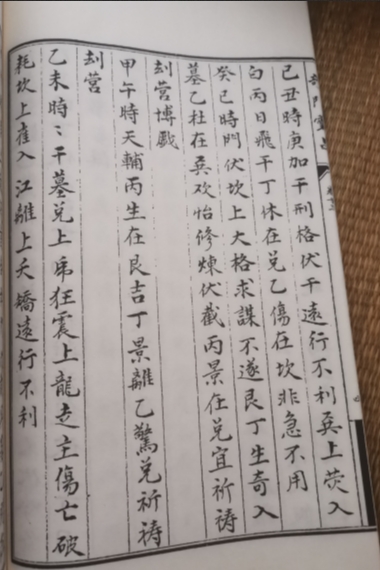 己丑時庚加干刑格伏干遠行不利兵上熒入
白丙日飛干丁休在兌乙傷在坎非急不用
癸巳時門伏坎上大格求謀不遂艮丁生奇入
墓乙杜在巽欢怡修煉伏截丙景任兌宜祈禱
刦营博戲
甲午時天輔丙生在艮吉丁景離乙驚兌祈禱
刦营
乙未時〻干墓兌上虎狂震上龍走主傷亡破
耗坎上雀入江離上夭矯遠行不利